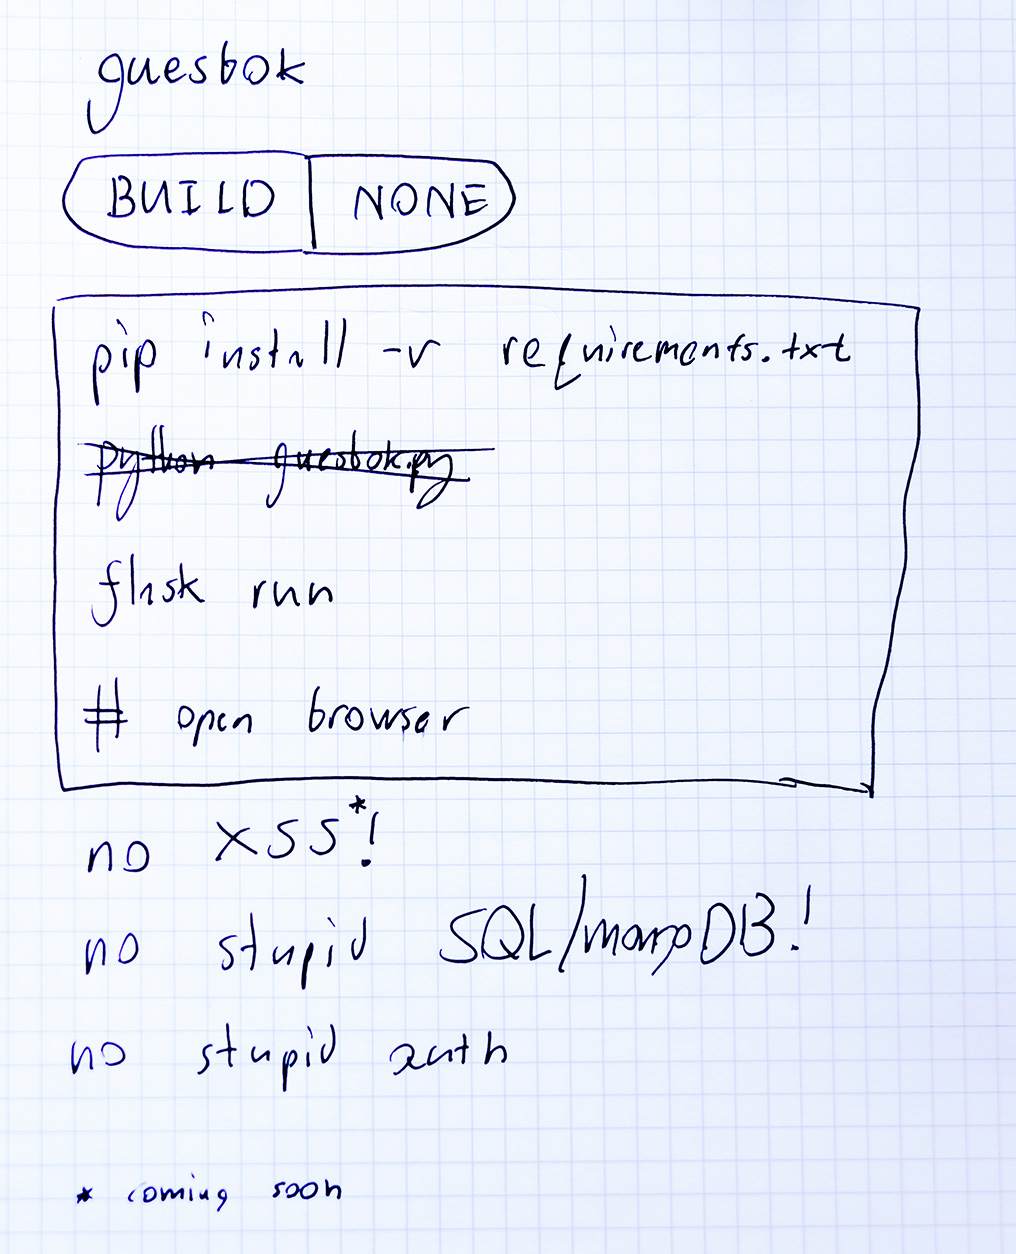 guesbok
BUILD NONE
pip install -r requirements.txt
python guesbok.py
flask run
# open browser
no XSS*!
no stupid SQL/mongoDB!
no stupid auth
* coming soon